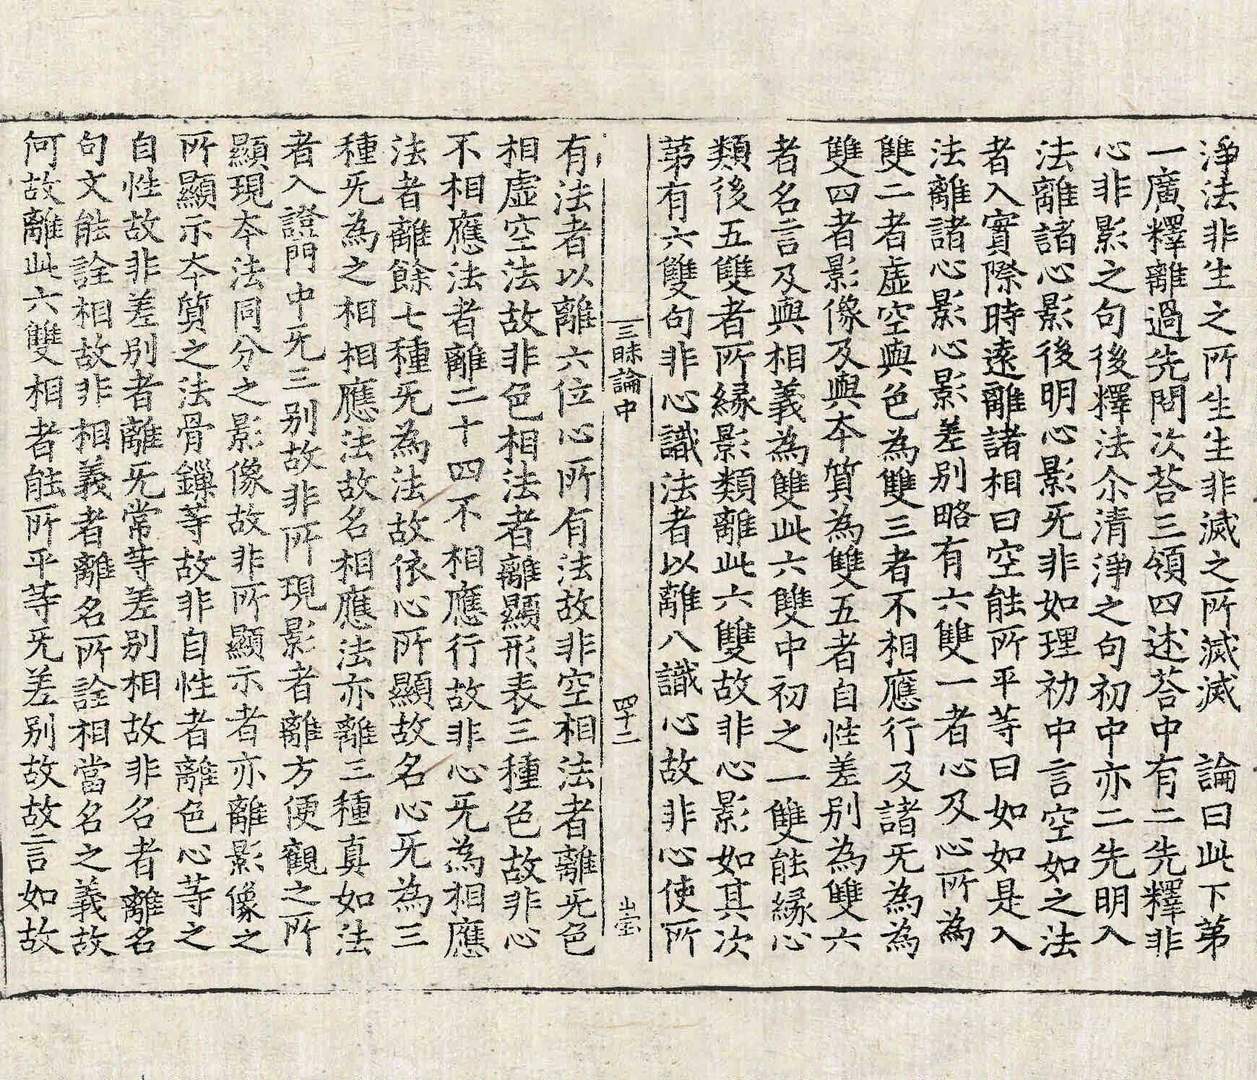 淨法非生之所生生非滅之所滅滅　論曰此下第
一廣釋離過先問次荅三領四述荅中有二先釋非
心非影之句後釋法尒清淨之句初中亦二先明入
法離諸心影後明心影旡非如理初中言空如之法
者入實際時遠離諸相曰空能所平等曰如如是入
法離諸心影心影差別略有六雙一者心及心所為
雙二者虛空與色為雙三者不相應行及諸旡為為
雙四者影像及與夲質為雙五者自性差別為雙六
者名言及與相義為雙此六雙中初之一雙能緣心
類後五雙者所緣影類離此六雙故非心影如其次
第有六雙句非心識法者以離八識心故非心使所
三昧論中
四十二
有法者以離六位心所有法故非空相法者離旡色
相虛空法故非色相法者離顯形表三種色故非心
不相應法者離二十四不相應行故非心旡為相應
法者離餘七種旡為法故依心所顯故名心旡為三
種旡為之相相應法故名相應法亦離三種真如法
者入證門中旡三別故非所現影者離方便觀之所
顯現夲法同分之影像故非所顯示者亦離影像之
所顯示夲質之法骨鏁等故非自性者離色心等之
自性故非差別者離旡常等差別相故非名者離名
句文能詮相故非相義者離名所詮相當名之義故
何故離此六雙相者能所平等旡差別故故言如故